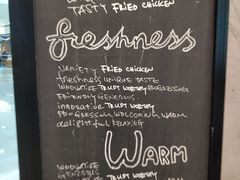 TASTY FRIED CHICKEN
freshness
VARIETY FRIED CHICKEN
freshness UNIQUE TASTE
INNOVATIVE TRUST WORTHY PROGRESSIVE
FRIENDLY GENEROUS
innovative TRUST WORTHY
PROGRESSIVE WELCOMING WARM
delightful RELAXING
WARM
INNOVATIVE
GENEROUS
TRUST WORTHY